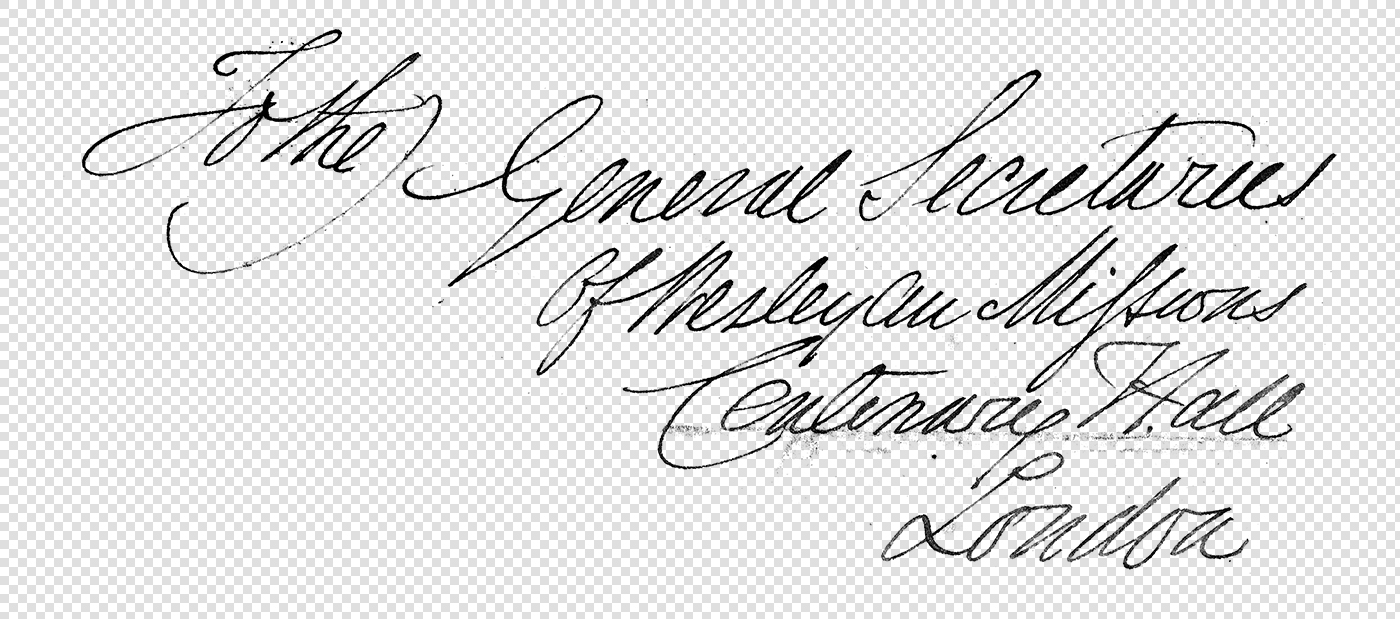 To the
General Secretaries
Of Wesleyan Missions
Centenary Hall
London